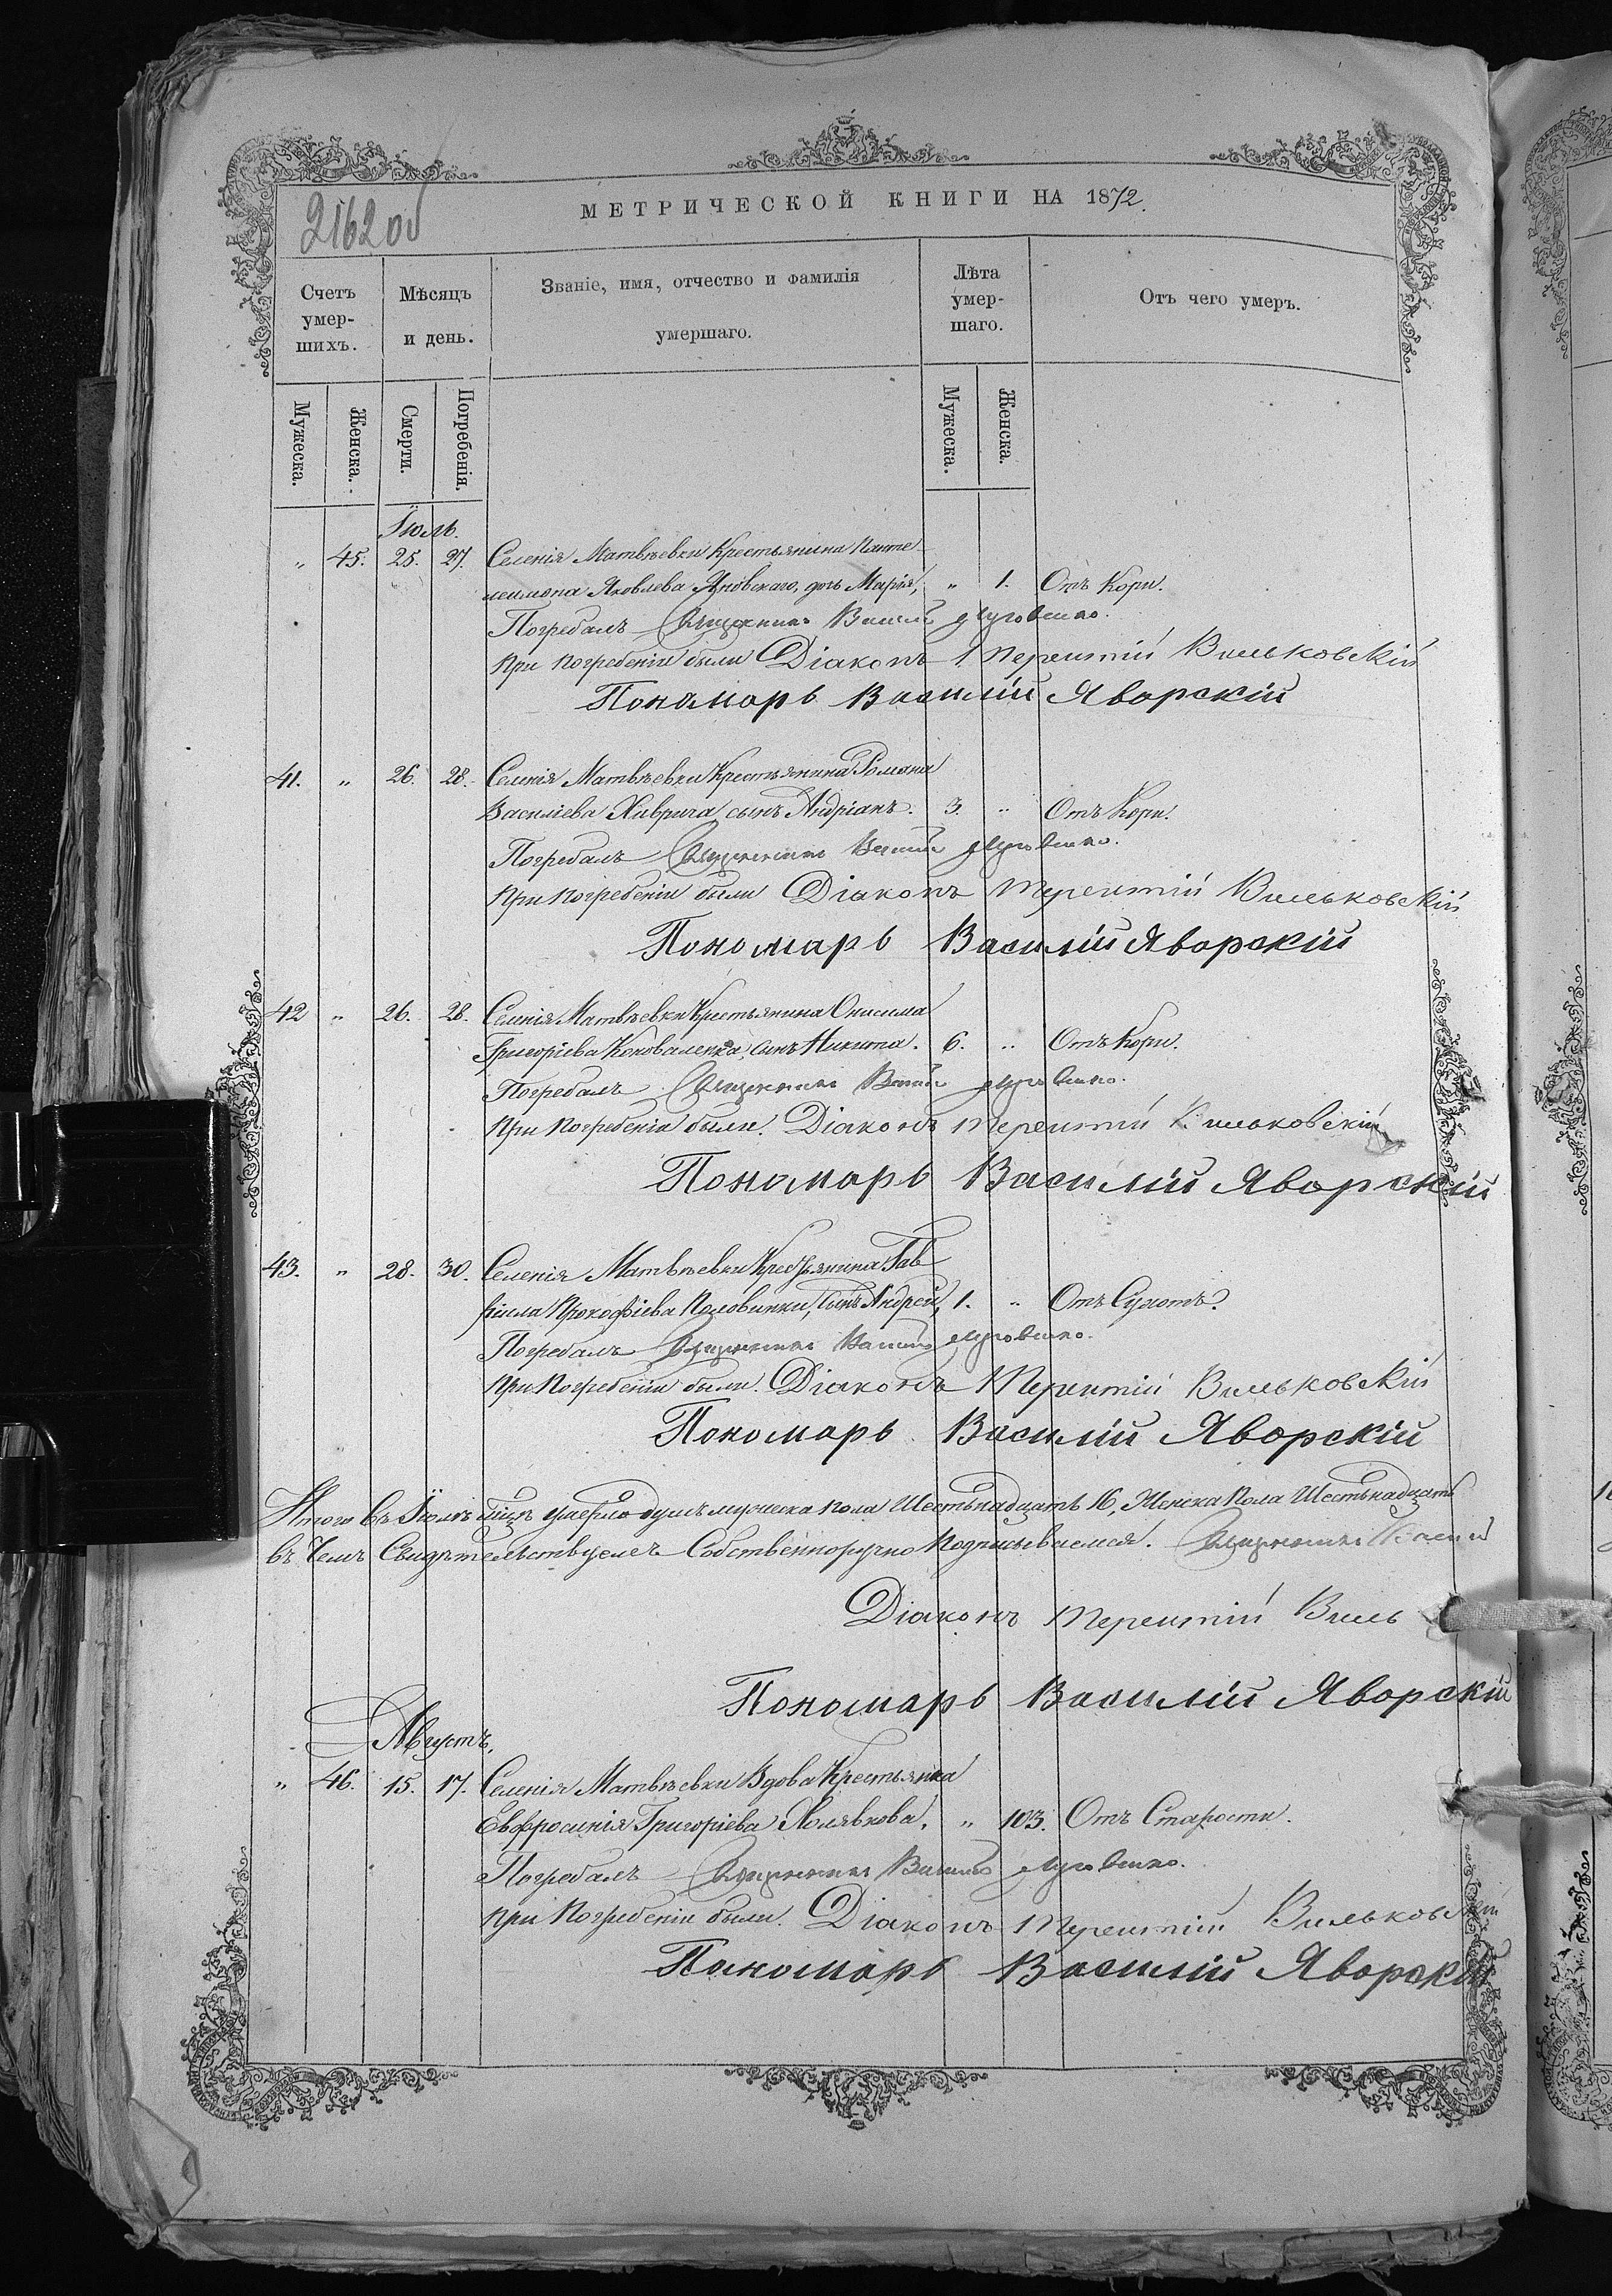 2162 об
МЕТРИЧЕСКОЙ КНИГИ НА 1872.
Счетъ умер-шихъ.
Мѣсяцъ и день.
Званіе, имя, отчество и фамилія умершаго.
Лѣта умер-шаго.
Отъ чего умеръ.
Мужеска.
Женска.
Смерти.
Погребенія.
Мужеска.
Женска.
Іюль.
" 45. 25. 27. Селенія Матвѣевки Крестьянина Панте-
леимона Яковлева Яновскаго, дочь Марія, " 1. Отъ Кори.
Погребалъ Священникъ Василій
При погребеніи были Діаконъ Терентій Вильковскій
Пономарь Василій Яворскій
41. " 26. 28. Селенія Матвѣевки Крестьянина Романа
Василіева Хиврича сынъ Андріанъ. 3. " Отъ Кори.
Погребалъ Священникъ Василій
При погребеніи были Діаконъ Терентій Вильковскій
Пономарь Василій Яворскій
42 " 26. 28. Селенія Матвѣевки Крестьянина Онисима
Григоріева Коноваленка сынъ Никита. 6. " Отъ Кори.
Погребалъ Священникъ Василій
При погребеніи были. Діаконъ Терентій Вильковскій
Пономарь Василій Яворскій
43. " 28. 30. Селенія Матвѣевки Крестьянина Гав-
ріила Прокофіева Половинки, сынъ Андрей, 1. " Отъ Сухотъ.
Погребалъ Священникъ Василій
При Погребеніи были. Діаконъ Терентій Вильковскій
Пономарь Василій Яворскій
Итого въ Іюлѣ мцѣ умерло душъ мужеска пола Шестьнадцать 16, Женска Пола Шестьнадцать
въ Чемъ Свидѣтельствуемъ Собственноручно Подписываемся. Священникъ Василій
Діаконъ Терентій Виль
Пономарь Василій Яворскій
Августъ.
" 46. 15. 17. Селенія Матвѣевки Вдова Крестьянка
Евфросинія Григоріева Холявкова, " 103. Отъ Старости.
Погребалъ Священникъ Василій
При Погребеніи были. Діаконъ Терентій Вильковскій
Пономарь Василій Яворскій